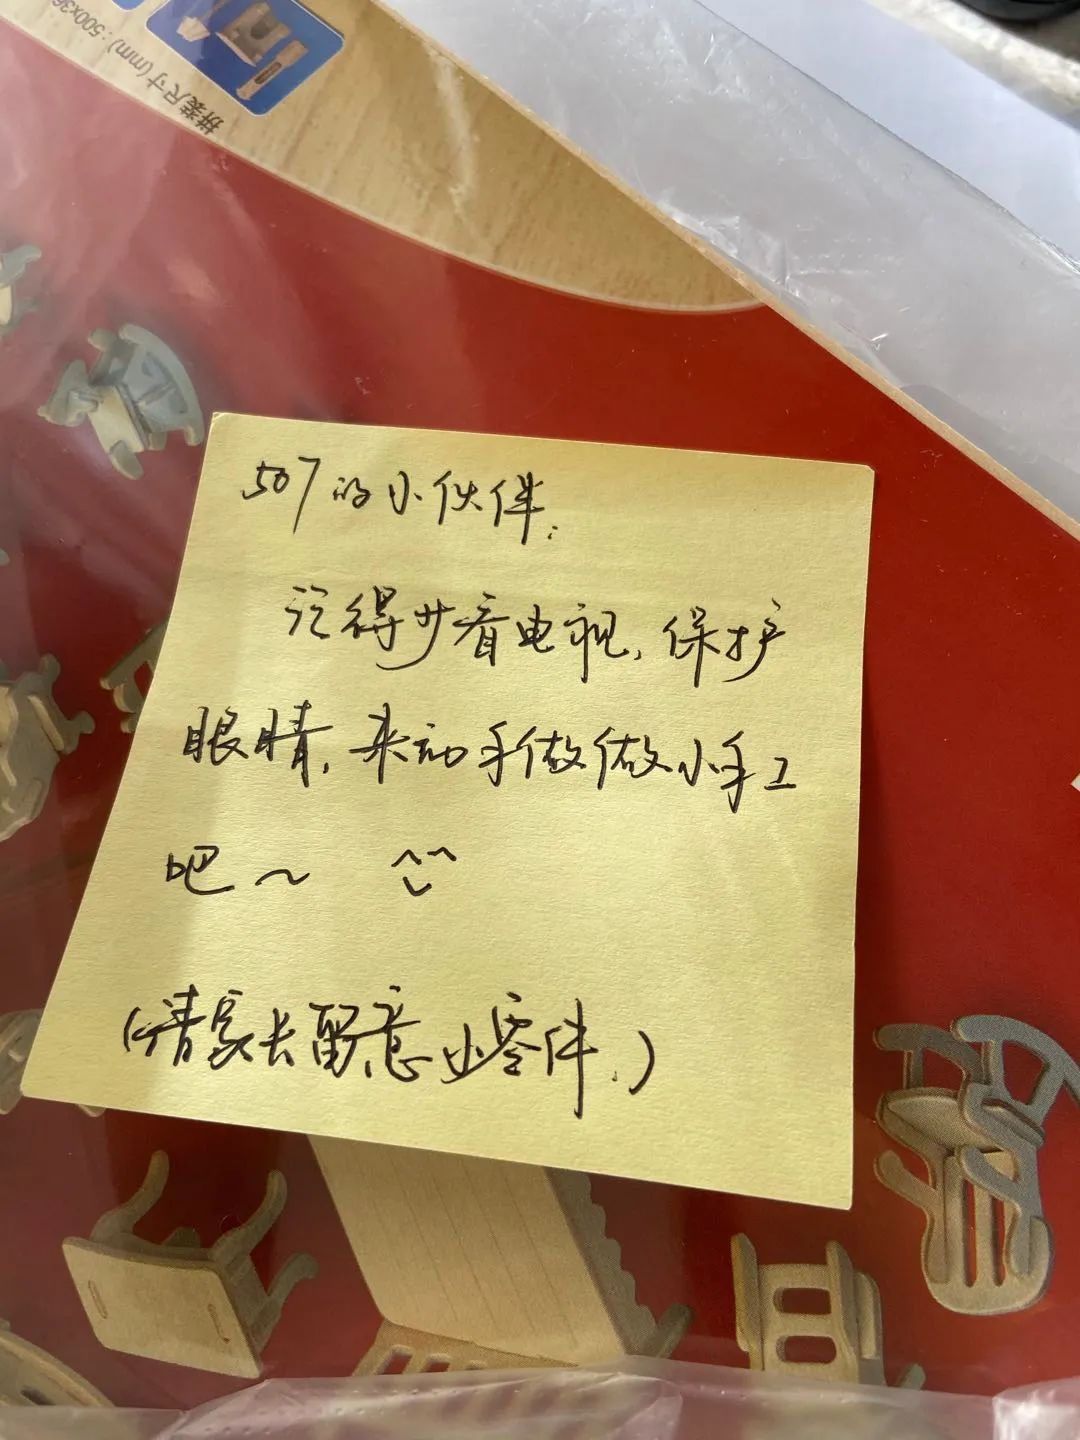 拼装尺寸(mm):500x36
507的小伙伴:
记得少看电视,保护
眼睛,来动手做做小手工
吧~
(请家长留意小零件.)